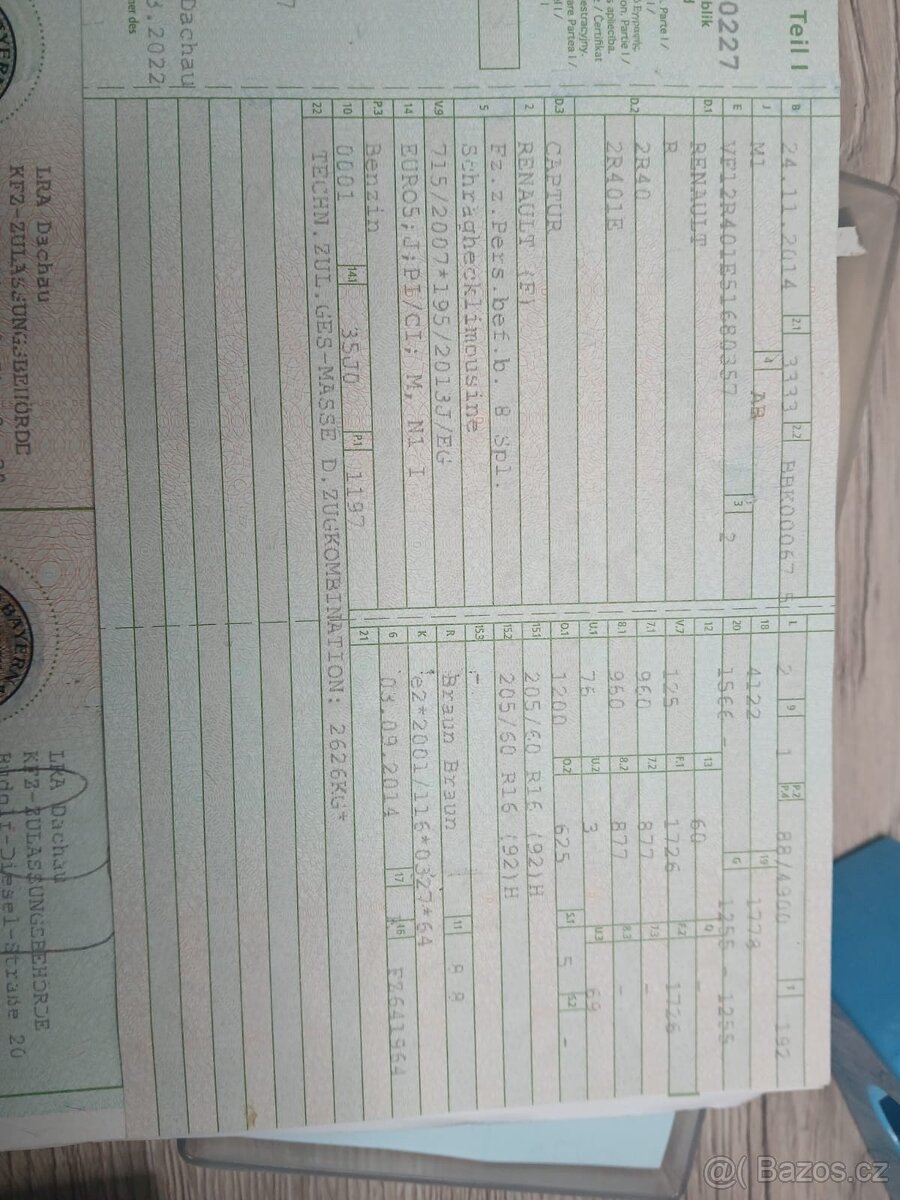 Teil I
0227
blik
Parte I /
on. Partie I /
s apliecība.
estracyjny.
: / Certifikat
are Partea I /
Dachau
3.2022
B 24.11.2014 2.1 3333 2.2 BBK00067 5
J M1 4 AB
E VF12R401E51680357 3 2
D.1 RENAULT
R
D.2 2R40
2R401E
D.3 CAPTUR
2 RENAULT (F)
5 Fz.z.Pers.bef.b. 8 Spl.
Schräghecklimousine
V.9 715/2007*195/2013J/EG
14 EURO5;J;PI/CI; M, N1 I
P.3 Benzin
10 0001 14.1 35J0 P.1 1197
22 TECHN.ZUL.GES-MASSE D.ZUGKOMBINATION: 2626KG*
L 2 9 1 P.2 P.4 88/4900 T 192
18 4122 19 1778
20 1566 - G 1255 - 1255
12 13 60 Q -
V.7 125 F.1 1726 F.2 1726
7.1 960 7.2 877 7.3 -
8.1 960 8.2 877 8.3 -
U.1 76 U.2 3 U.3 69
O.1 1200 O.2 625 S.1 5 S.2 -
15.1 205/60 R16 (92)H
15.2 205/60 R16 (92)H
15.3 -
R Braun Braun 11 8 8
K e2*2001/116*0327*64
6 03.09.2014 17 K 16 FZ641964
21
LRA Dachau
KFZ-ZULASSUNGSBEHÖRDE
LRA Dachau
KFZ-ZULASSUNGSBEHÖRDE
Rudolf-Diesel-Straße 20
BAYERN
@( Bazos.cz